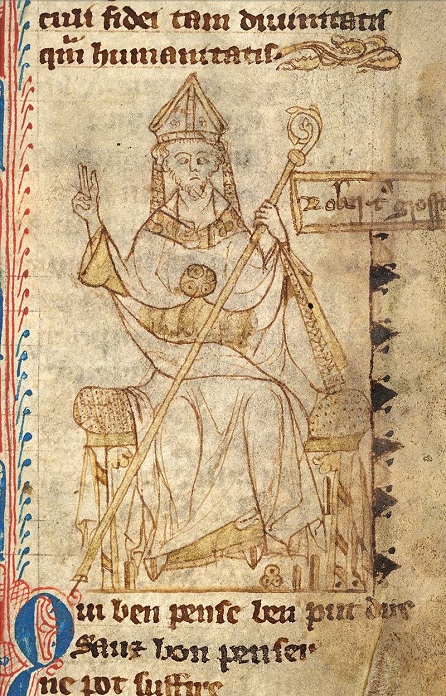 culi fidei tam diuinitatis
qm̄ humanitatis.
Rob't gross
Qui ben pense ben put dire
Sanz bon penser
ne pot suffire